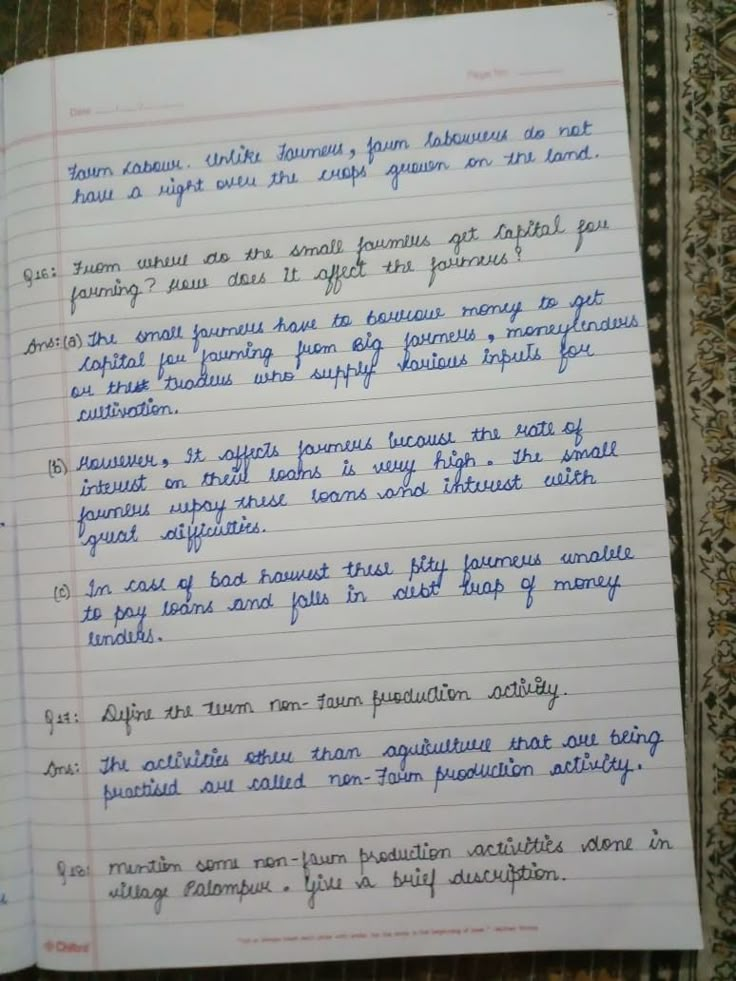 Page No.
Date
Farm Labour. Unlike Farmers, farm labourers do not
have a right over the crops grown on the land.
Q16: From where do the small farmers get capital for
farming? How does it affect the farmers?
Ans: (a) The small farmers have to borrow money to get
capital for farming from Big farmers, moneylenders
or the traders who supply various inputs for
cultivation.
(b) However, It affects farmers because the rate of
interest on their loans is very high. The small
farmers repay these loans and interest with
great difficulties.
(c) In case of bad harvest these pity farmers unable
to pay loans and falls in debt trap of money
lenders.
Q17: Define the term non-Farm production activity.
Ans: The activities other than agriculture that are being
practised are called non-Farm production activity.
Q18: Mention some non-farm production activities done in
village Palampur. Give a brief description.